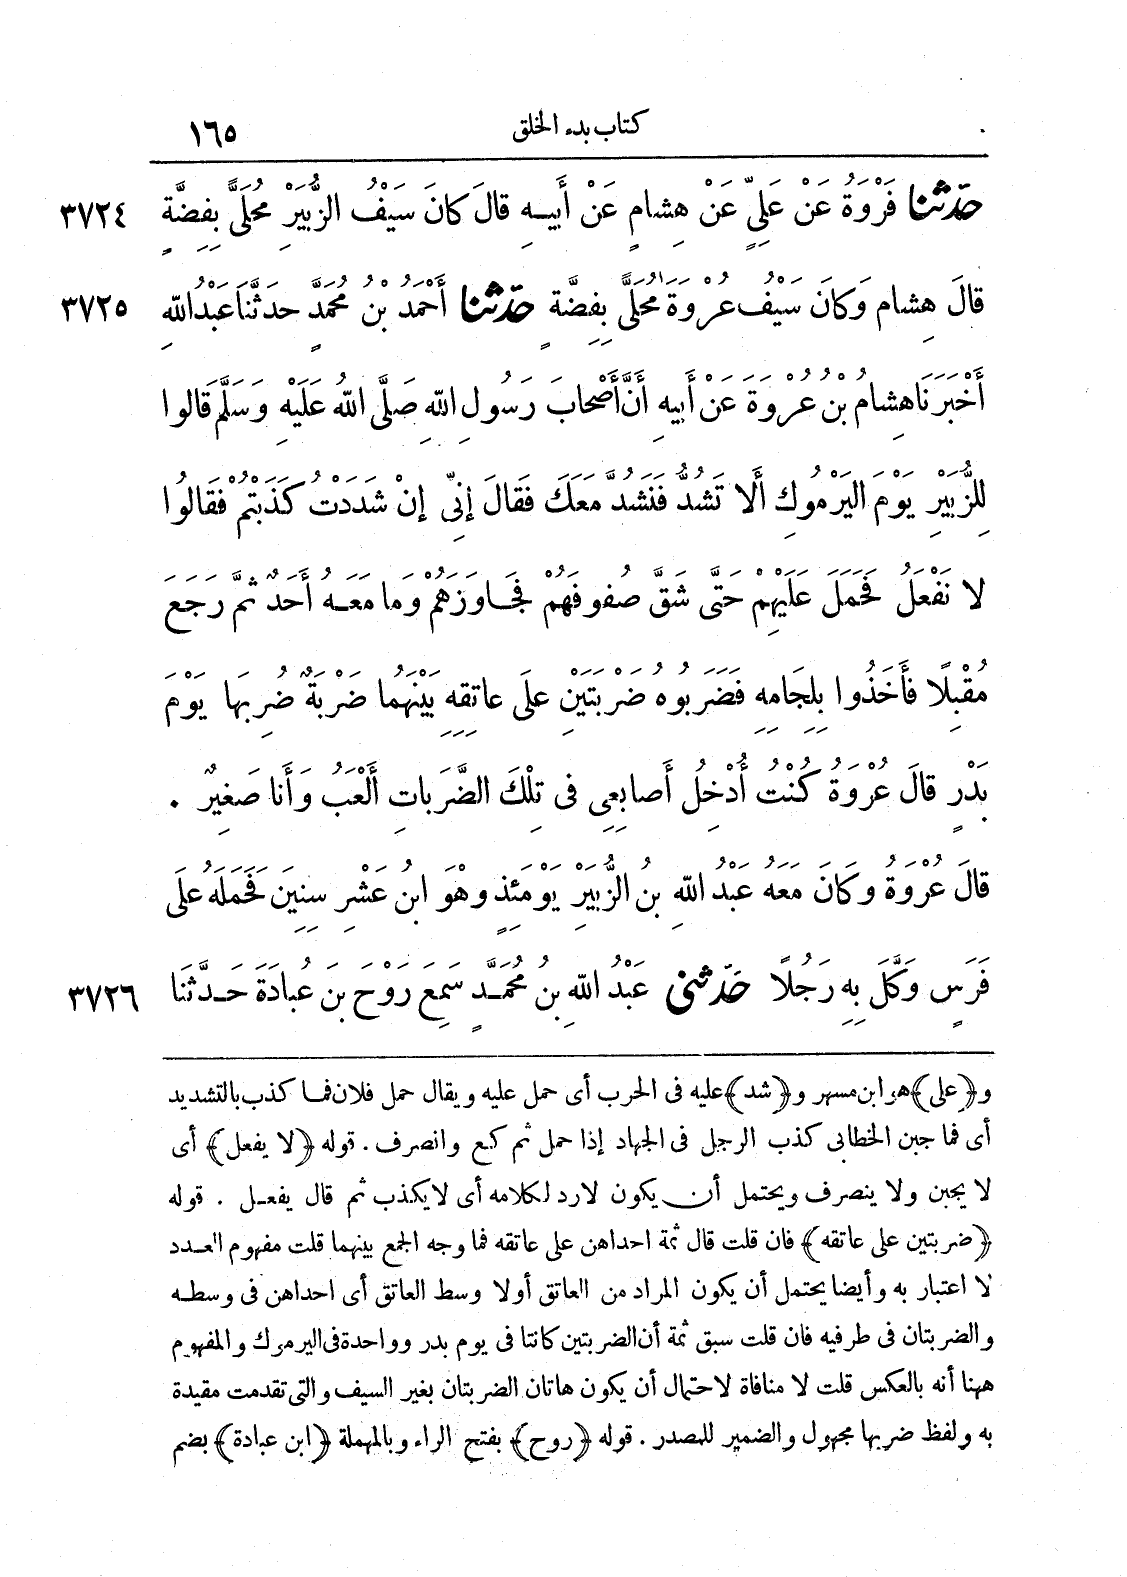 كتاب بدء الخلق ١٦٥
حَدَّثَنَا فَرْوَةُ عَنْ عَلِيٍّ عَنْ هِشامٍ عَنْ أَبِيهِ قالَ كانَ سَيْفُ الزُّبَيْرِ مُحَلًّى بِفِضَّةٍ ٣٧٢٤
قالَ هِشام وَكانَ سَيْفُ عُرْوَةَ مُحَلًّى بِفِضَّةٍ حَدَّثَنَا أَحْمَدُ بْنُ مُحَمَّدٍ حَدَّثَنا عَبْدُ اللهِ ٣٧٢٥
أَخْبَرَنا هِشامُ بْنُ عُرْوَةَ عَنْ أَبيهِ أَنَّ أَصْحابَ رَسُولِ اللهِ صَلَّى اللهُ عَلَيْهِ وَسَلَّمَ قالوا
لِلزُّبَيْرِ يَوْمَ اليَرْمُوكِ أَلا تَشُدُّ فَنَشُدَّ مَعَكَ فَقالَ إِنِّي إِنْ شَدَدْتُ كَذَبْتُمْ فَقَالُوا
لا نَفْعَلُ فَحَمَلَ عَلَيْهِمْ حَتَّى شَقَّ صُفوفَهُمْ فَجَاوَزَهُمْ وَما مَعَهُ أَحَدٌ ثُمَّ رَجَعَ
مُقْبِلًا فَأَخَذُوا بِلِجَامِهِ فَضَرَبُوهُ ضَرْبَتَيْنِ عَلَى عاتِقِهِ بَيْنَهُما ضَرْبَةٌ ضُرِبَها يَوْمَ
بَدْرٍ قالَ عُرْوَةُ كُنْتُ أُدْخِلُ أَصابِعِي في تِلْكَ الضَّرَباتِ أَلْعَبُ وَأَنا صَغِيرٌ .
قالَ عُرْوَةُ وَكانَ مَعَهُ عَبْدُ اللهِ بْنُ الزُّبَيْرِ يَوْمَئِذٍ وَهْوَ ابنُ عَشْرِ سِنِينَ فَحَمَلَهُ عَلَى
فَرَسٍ وَكَّلَ بِهِ رَجُلًا حَدَّثَنِي عَبْدُ اللهِ بنُ مُحَمَّدٍ سَمِعَ رَوْحَ بنَ عُبادَةَ حَدَّثَنا ٣٧٢٦
و﴿علي﴾ هو ابن مسهر و﴿شد﴾ عليه فى الحرب أى حمل عليه ويقال حمل فلان فما كذب بالتشديد
أى فما جبن الخطابى كذب الرجل فى الجهاد إذا حمل ثم كع وانصرف . قوله ﴿لا يفعل﴾ أى
لا يجبن ولا ينصرف ويحتمل أن يكون لا رد لكلامه أى لا يكذب ثم قال يفعل . قوله
﴿ضربتين على عاتقه﴾ فان قلت قال ثمة احداهن على عاتقه فما وجه الجمع بينهما قلت مفهوم العدد
لا اعتبار به وأيضا يحتمل أن يكون المراد من العاتق أولا وسط العاتق أى احداهن فى وسطه
والضربتان فى طرفيه فان قلت سبق ثمة أن الضربتين كانتا فى يوم بدر وواحدة فى اليرموك والمفهوم
ههنا أنه بالعكس قلت لا منافاة لاحتمال أن يكون هاتان الضربتان بغير السيف والتى تقدمت مقيدة
به ولفظ ضربها مجهول والضمير للمصدر . قوله ﴿روح﴾ بفتح الراء وبالمهملة ﴿ابن عبادة﴾ بضم